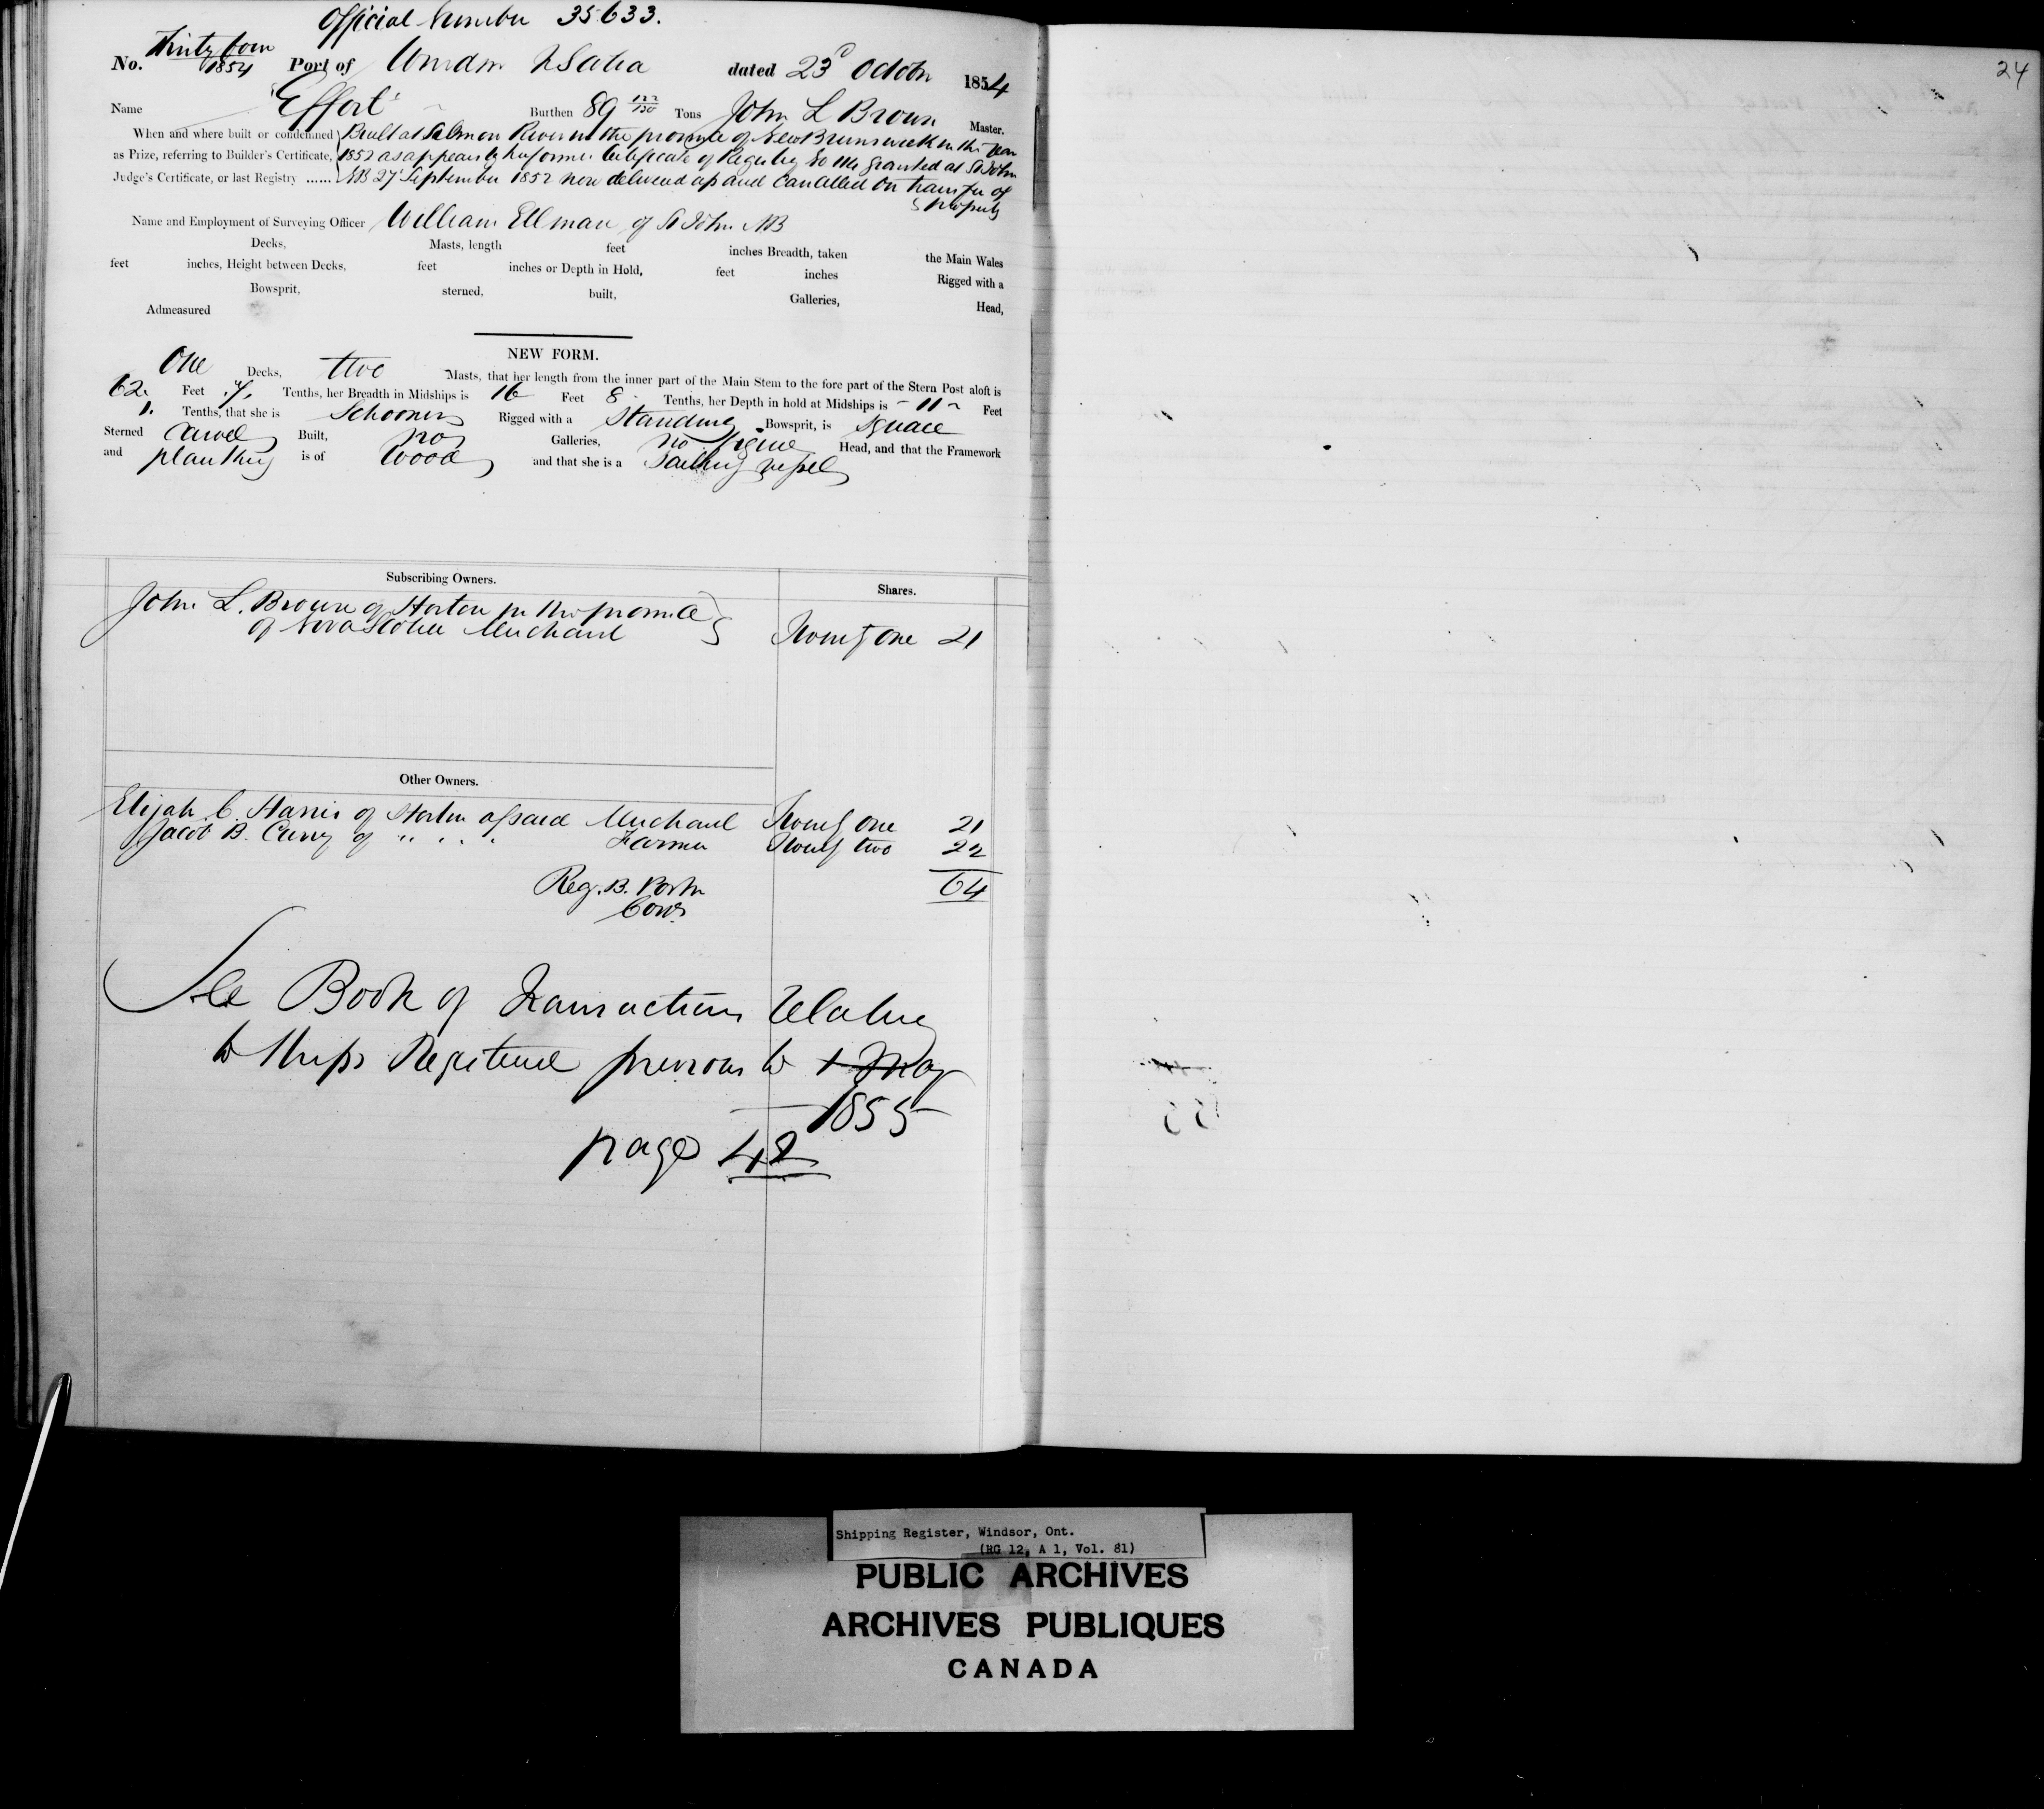 Official Number 35633.
No. Thirty four 1854 Port of Windsor N Scotia dated 23d October 1854
Name "Effort" Burthen 89 Tons John L Brown Master.
When and where built or condemned Built at Salmon River in the province of New Brunswick in the year
as Prize, referring to Builder's Certificate, 1852 as appears by her former Certificate of Registry No 116 granted at St John
Judge's Certificate, or last Registry ...... NB 27 September 1852 now delivered up and cancelled on transfer of
property
Name and Employment of Surveying Officer William Ellman of St John NB
Decks, Masts, length feet inches Breadth, taken the Main Wales
feet inches, Height between Decks, feet inches or Depth in Hold, feet inches Rigged with a
Bowsprit, sterned, built, Galleries, Head,
Admeasured
NEW FORM.
One Decks, two Masts, that her length from the inner part of the Main Stem to the fore part of the Stern Post aloft is
62 Feet 7 Tenths, her Breadth in Midships is 16 Feet 8 Tenths, her Depth in hold at Midships is - 11 - Feet
1. Tenths, that she is Schooner Rigged with a Standing Bowsprit, is Square
Sterned Carvel Built, no Galleries, no figure Head, and that the Framework
and planking is of Wood and that she is a Sailing vessel
Subscribing Owners. Shares.
John L. Brown of Horton in the province
of Nova Scotia Merchant Twenty one 21
Other Owners.
Elijah C. Harris of Horton aforsaid Merchant Twenty one 21
Jacob B. Curry of " " " Farmer Twenty two 22
Reg. B. Porter 64
Comr
See Book of Transactions relating
to Ships Registered previous to 1 May
1855
page 42
24
Shipping Register, Windsor, Ont.
(RG 12, A 1, Vol. 81)
PUBLIC ARCHIVES
ARCHIVES PUBLIQUES
CANADA